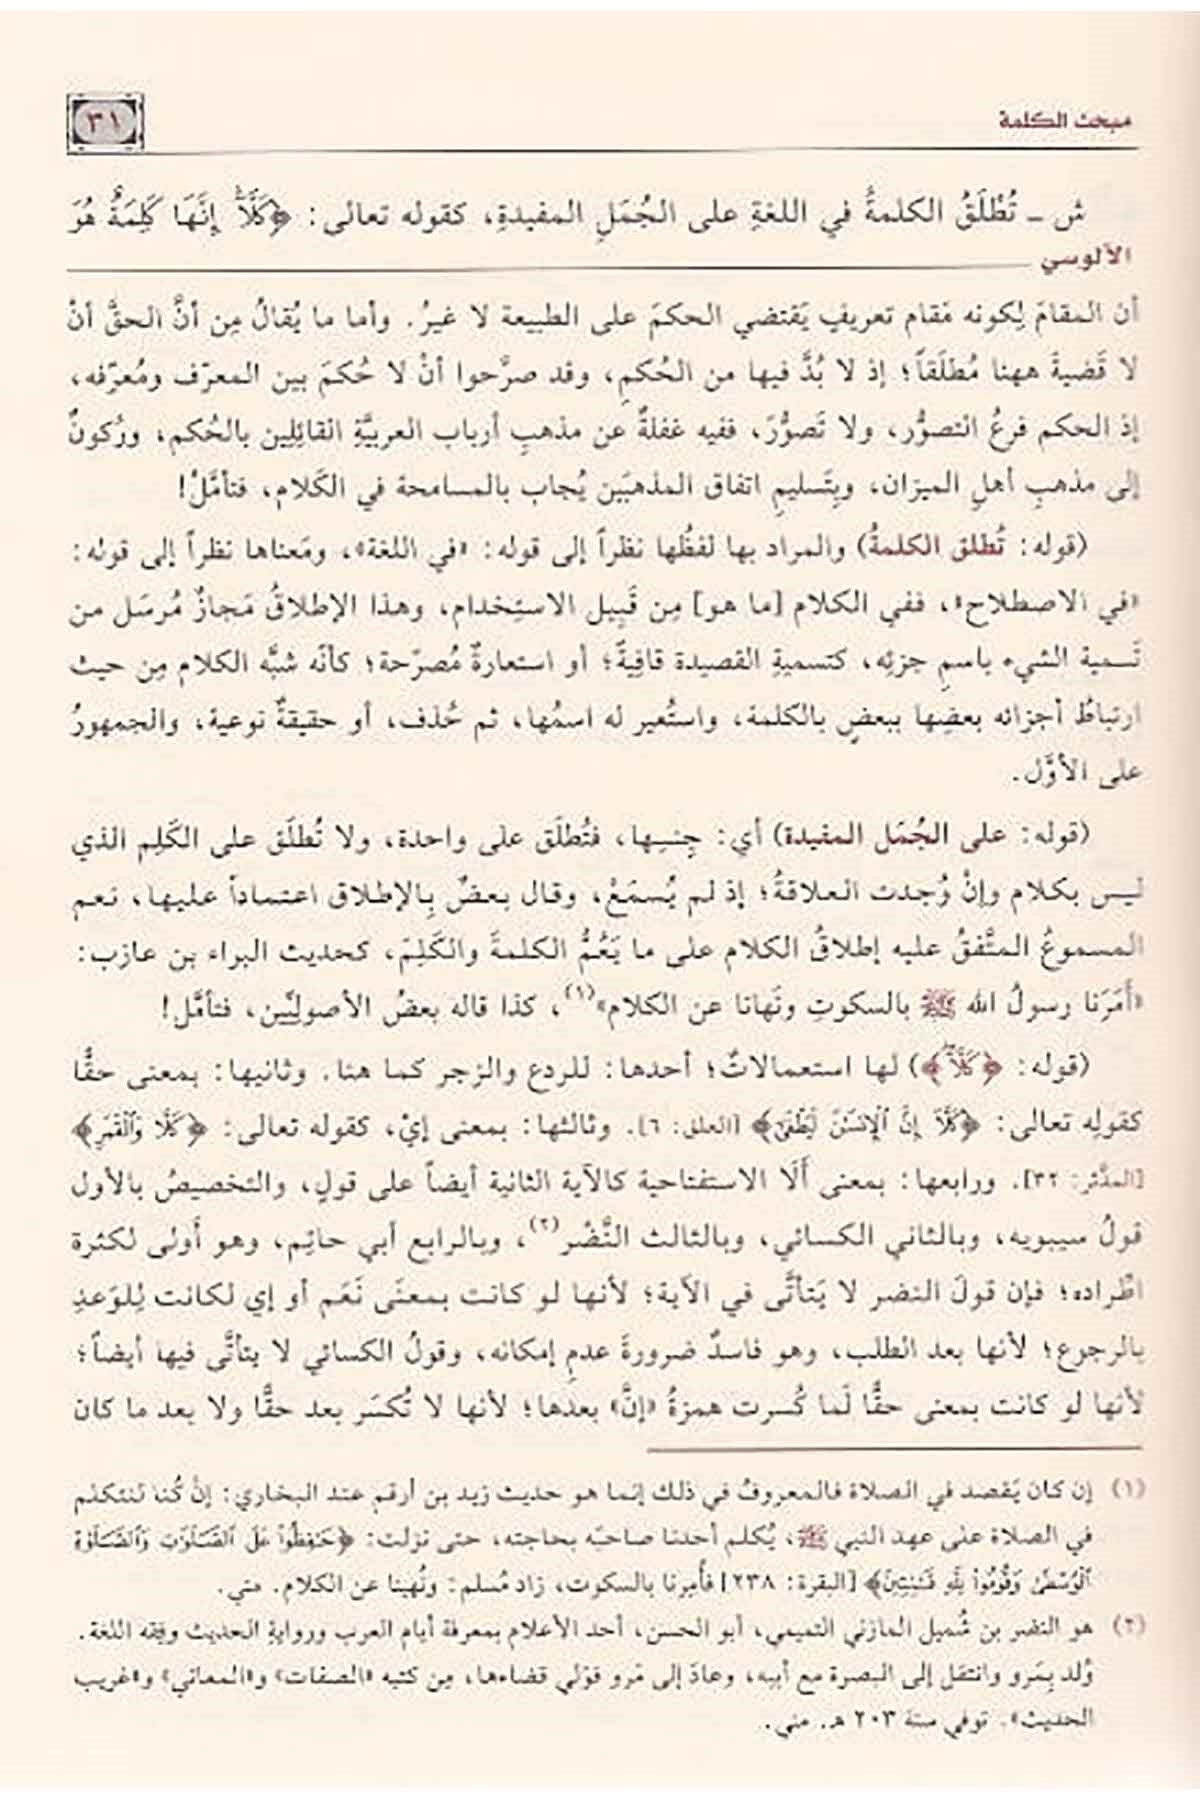 مبحث الكلمة
٣١
ش ـ تُطْلَقُ الكلمةُ في اللغةِ على الجُمَلِ المفيدةِ، كقوله تعالى: ﴿كَلَّآ إِنَّهَا كَلِمَةٌ هُوَ
الآلوسي
أن المقامَ لِكونه مَقام تعريفٍ يَقتضي الحكمَ على الطبيعة لا غيرُ. وأما ما يُقالُ مِن أنَّ الحقَّ أنْ
لا قَضيةَ ههنا مُطلَقاً؛ إذ لا بُدَّ فيها من الحُكمِ، وقد صرَّحوا أنْ لا حُكمَ بين المعرّف ومُعرّفه،
إذ الحكم فرعُ التصوُّر، ولا تَصوُّرَ، ففيه غفلةٌ عن مذهبِ أرباب العربيَّةِ القائِلِين بالحُكم، ورُكونٌ
إلى مذهبِ أهلِ الميزان، وبِتَسليمِ اتفاق المذهبَين يُجاب بالمسامحة في الكَلام، فتأمَّلْ!
(قوله: تُطلق الكلمةُ) والمراد بها لفظُها نظراً إلى قوله: «في اللغة»، ومَعناها نظراً إلى قوله:
«في الاصطلاح»، ففي الكلام [ما هو] مِن قَبِيل الاستِخدام، وهذا الإطلاقُ مَجازٌ مُرسَل من
تَسمية الشيء باسمِ جزئِه، كتسميةِ القصيدة قافِيةً؛ أو استعارةٌ مُصرّحة؛ كأنّه شبَّه الكلام مِن حيث
ارتباطُ أجزائه بعضِها ببعضٍ بالكلمة، واستُعير له اسمُها، ثم حُذف، أو حقيقةٌ نوعية، والجمهورُ
على الأوَّل.
(قوله: على الجُمَل المفيدة) أي: جِنسِها، فتُطلَق على واحدة، ولا تُطلَق على الكَلِم الذي
ليس بكلام وإنْ وُجدت العلاقةُ؛ إذ لم يُسمَعْ، وقال بعضٌ بِالإطلاق اعتماداً عليها، نعم
المسموعُ المتَّفقُ عليه إطلاقُ الكلام على ما يَعُمُّ الكلمةَ والكَلِمَ، كحديث البراء بن عازب:
«أَمَرَنا رسولُ الله ﷺ بالسكوتِ ونَهانا عن الكلام»(١)، كذا قاله بعضُ الأصولِيِّين، فتأمَّل!
(قوله: ﴿كَلَّآ﴾) لها استعمالاتٌ؛ أحدها: للردع والزجر كما هنا. وثانيها: بمعنى حقًّا
كقولِه تعالى: ﴿كَلَّآ إِنَّ ٱلْإِنسَٰنَ لَيَطْغَىٰٓ﴾ [العلق: ٦]. وثالثها: بمعنى إيْ، كقوله تعالى: ﴿كَلَّا وَٱلْقَمَرِ﴾
[المدَّثر: ٣٢]. ورابعها: بمعنى أَلَا الاستفتاحية كالآية الثانية أيضاً على قولٍ، والتخصيصُ بالأول
قولُ سيبويه، وبالثاني الكسائي، وبالثالث النَّضْر(٢)، وبالرابع أبي حاتِم، وهو أَولى لكثرة
اطِّراده؛ فإن قولَ النضر لا يَتأتَّى في الآية؛ لأنها لو كانت بمعنَى نَعَم أو إي لكانت لِلوَعدِ
بالرجوع؛ لأنها بعد الطلب، وهو فاسدٌ ضرورةَ عدمِ إمكانه، وقولُ الكسائي لا يتأتَّى فيها أيضاً؛
لأنها لو كانت بمعنى حقًّا لَما كُسرت همزةُ «إنَّ» بعدها؛ لأنها لا تُكسَر بعد حقًّا ولا بعد ما كان
(١) إن كان يَقصد في الصلاة فالمعروفُ في ذلك إنما هو حديث زيد بن أرقم عند البخاري: إنْ كُنا لنتكلم
في الصلاة على عهد النبي ﷺ، يُكلم أحدنا صاحبَه بحاجته، حتى نزلت: ﴿حَٰفِظُوا۟ عَلَى ٱلصَّلَوَٰتِ وَٱلصَّلَوٰةِ
ٱلْوُسْطَىٰ وَقُومُوا۟ لِلَّهِ قَٰنِتِينَ﴾ [البقرة: ٢٣٨] فأُمِرنا بالسكوت، زاد مُسلم: ونُهينا عن الكلام. مني.
(٢) هو النضر بن شُميل المازني التميمي، أبو الحسن، أحد الأعلام بمعرفة أيام العرب وروايةِ الحديث وفِقه اللغة.
وُلد بِمَرو وانتقل إلى البصرة مع أبيه، وعادَ إلى مَرو فوَلي قضاءها، مِن كتبه «الصفات» و«المعاني» و«غريب
الحديث». توفي سنة ٢٠٣ هـ. مني.